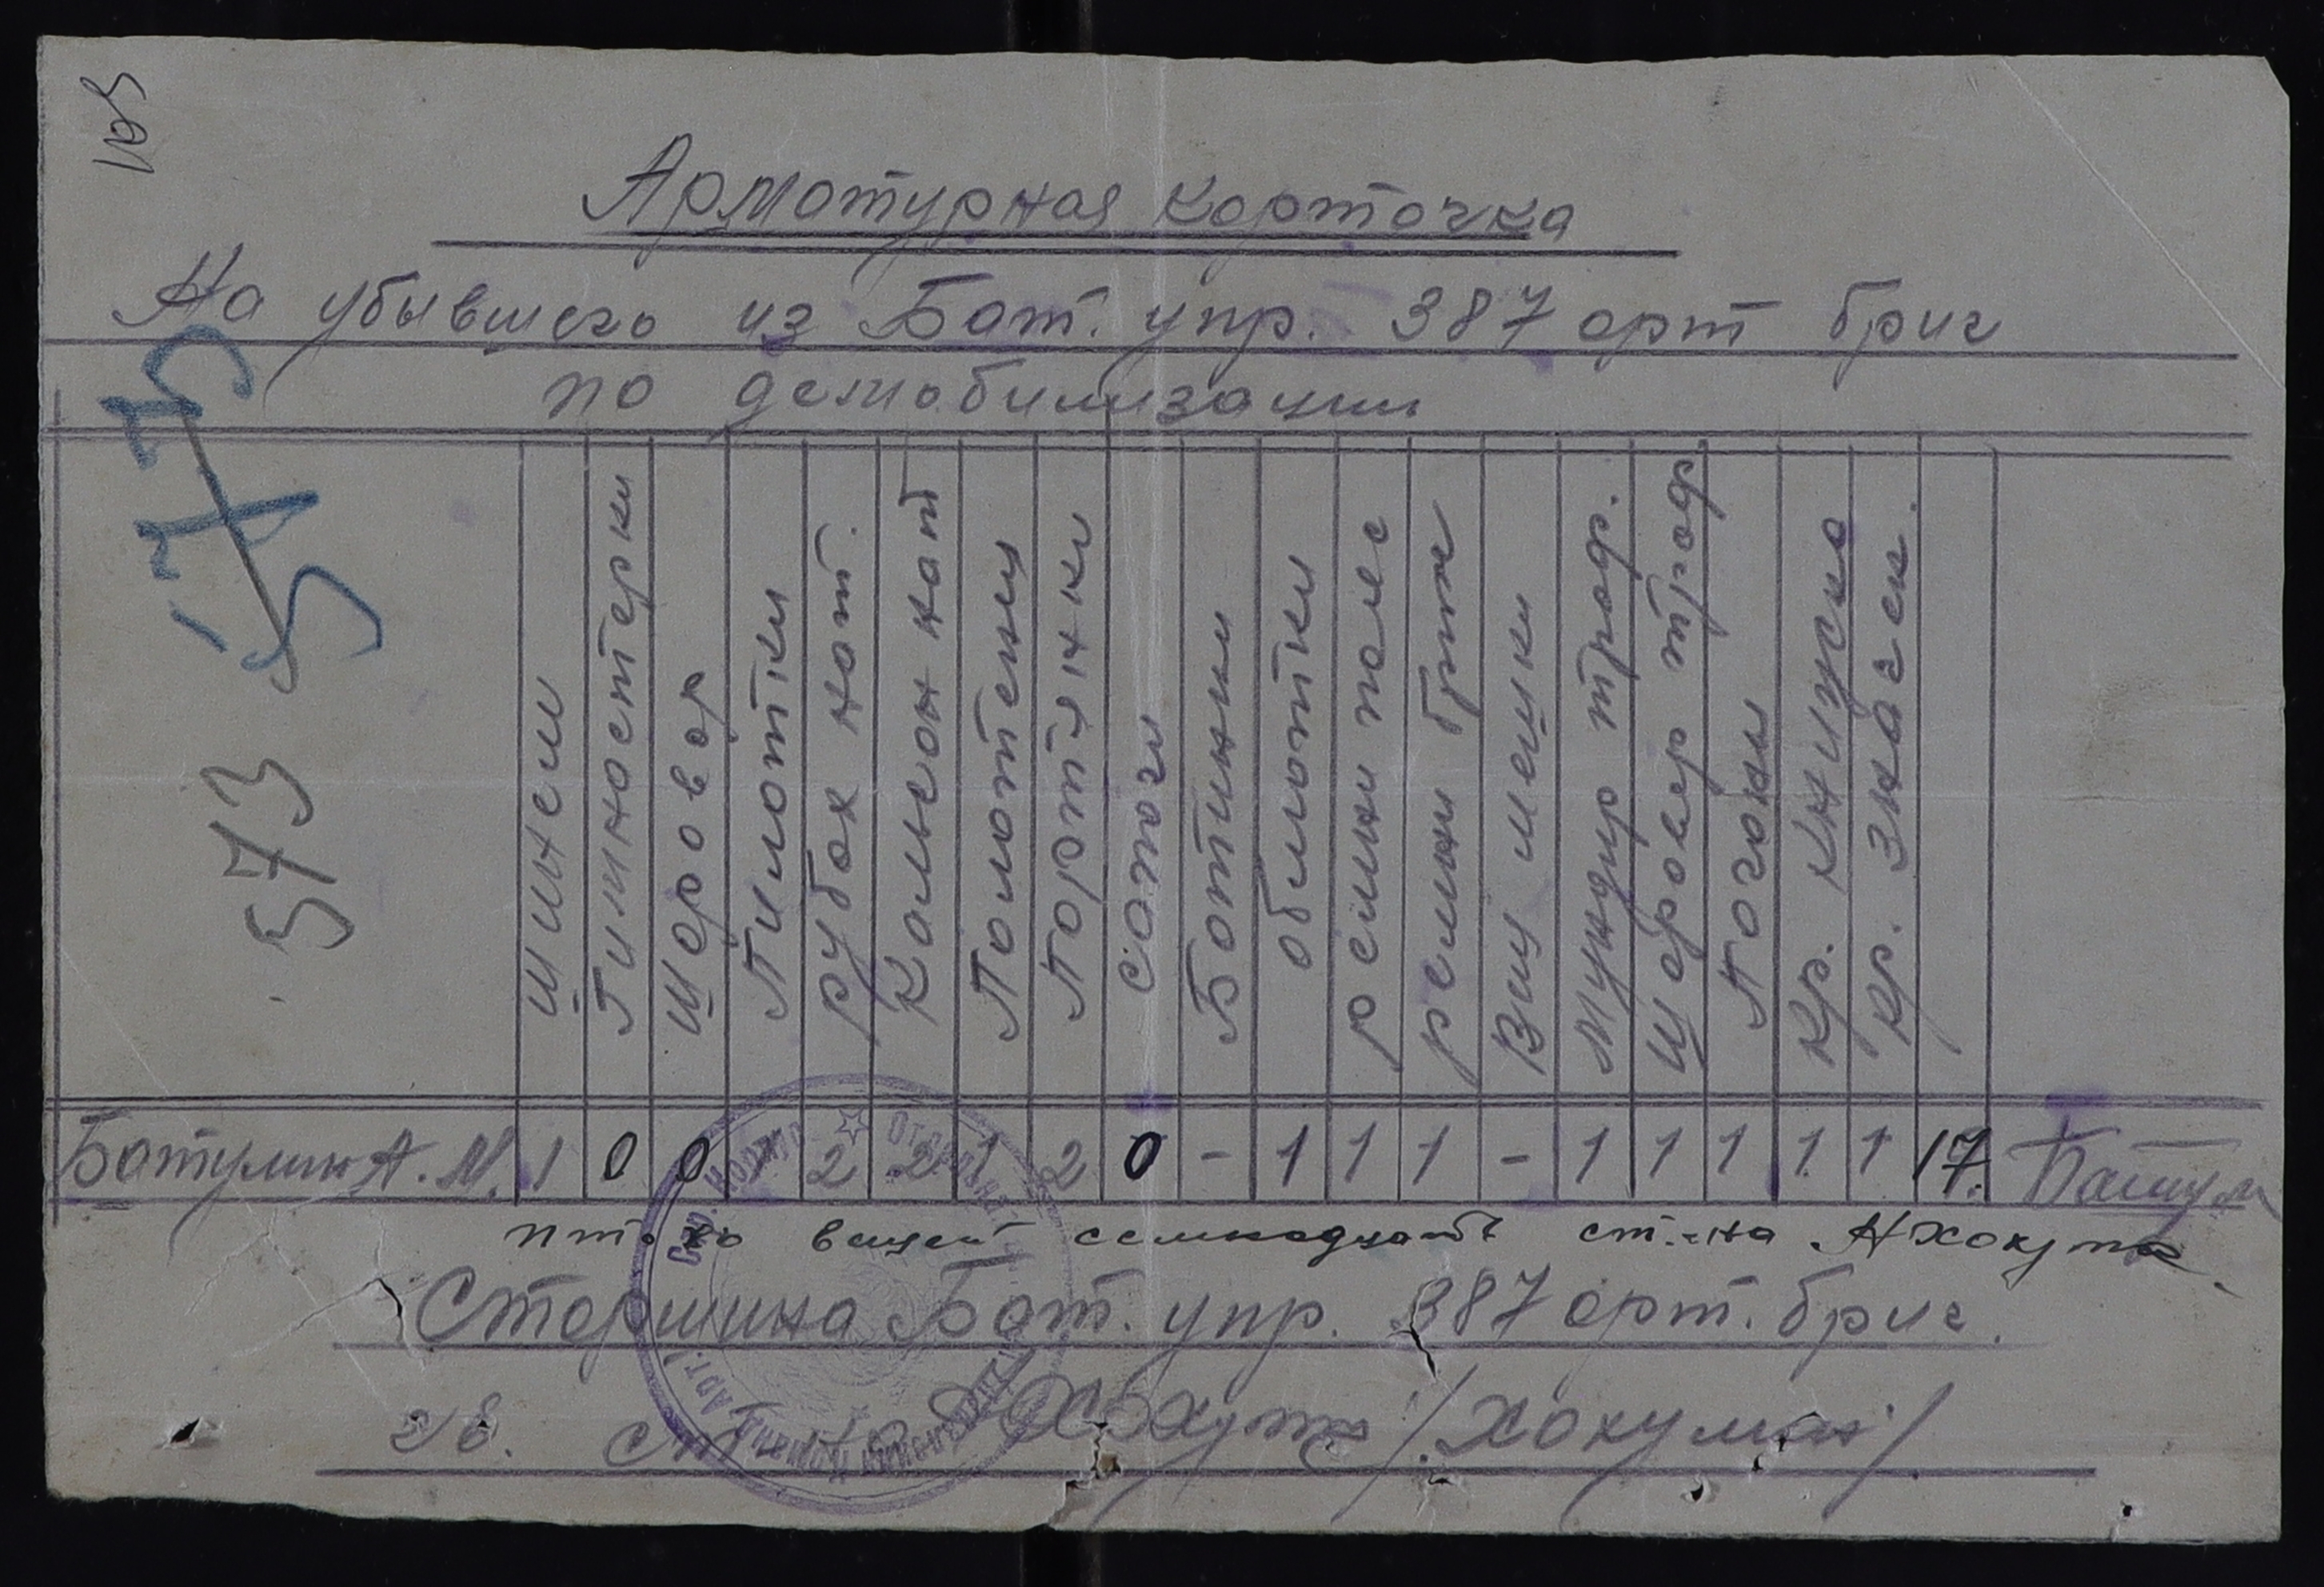 109
Арматурная карточка
На убывшего из Бат. упр. 387 арт бриг
по демобилизации
573
573
Шинели
Гимнастерки
Шаровар
Пилотки
рубах нат.
Кальсон нат
Полотенц
Портянки
Сапоги
Ботинки
обмотки
ремни пояс
ремни брюч
Вещ мешки
Мундир троф.
Шаровар троф
Погоны
Кр. Книжка
Кр. Знаеек.
Батулин А. М. 1 0 0 1 2 2 1 2 0 - 1 1 1 - 1 1 1 1 1 17. Батул
вещей семнадцать ст-на
Старшина Бат. упр. 387 арт. бриг.
гв. ст-на /Хокуман/